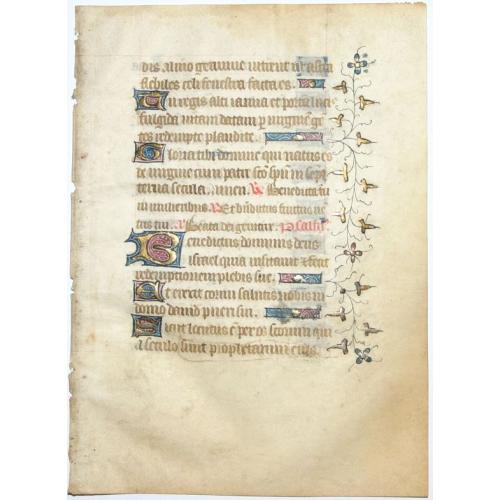 dis almo germine intrent ut astra
flebiles celi fenestra facta es.
Tu regis alti ianua et porta lucis
fulgida vitam datam p virginē gē
tes redempte plaudite.
Gloria tibi domine qui natus es
de virgine cum patre sctō spū in semp
terna secula. amen. Benedicta tu
in mulieribus. Et bn̄dictus fructus ue
tris tui. Beata dei genitrix.
Benedictus dominus deus
israel quia visitavit et fecit
redemptionem plebis sue.
Et erexit cornu salutis nobis in
domo david pueri sui.
Sicut locutus ē per os sctorum qui
a seculo sunt prophetarum eius.